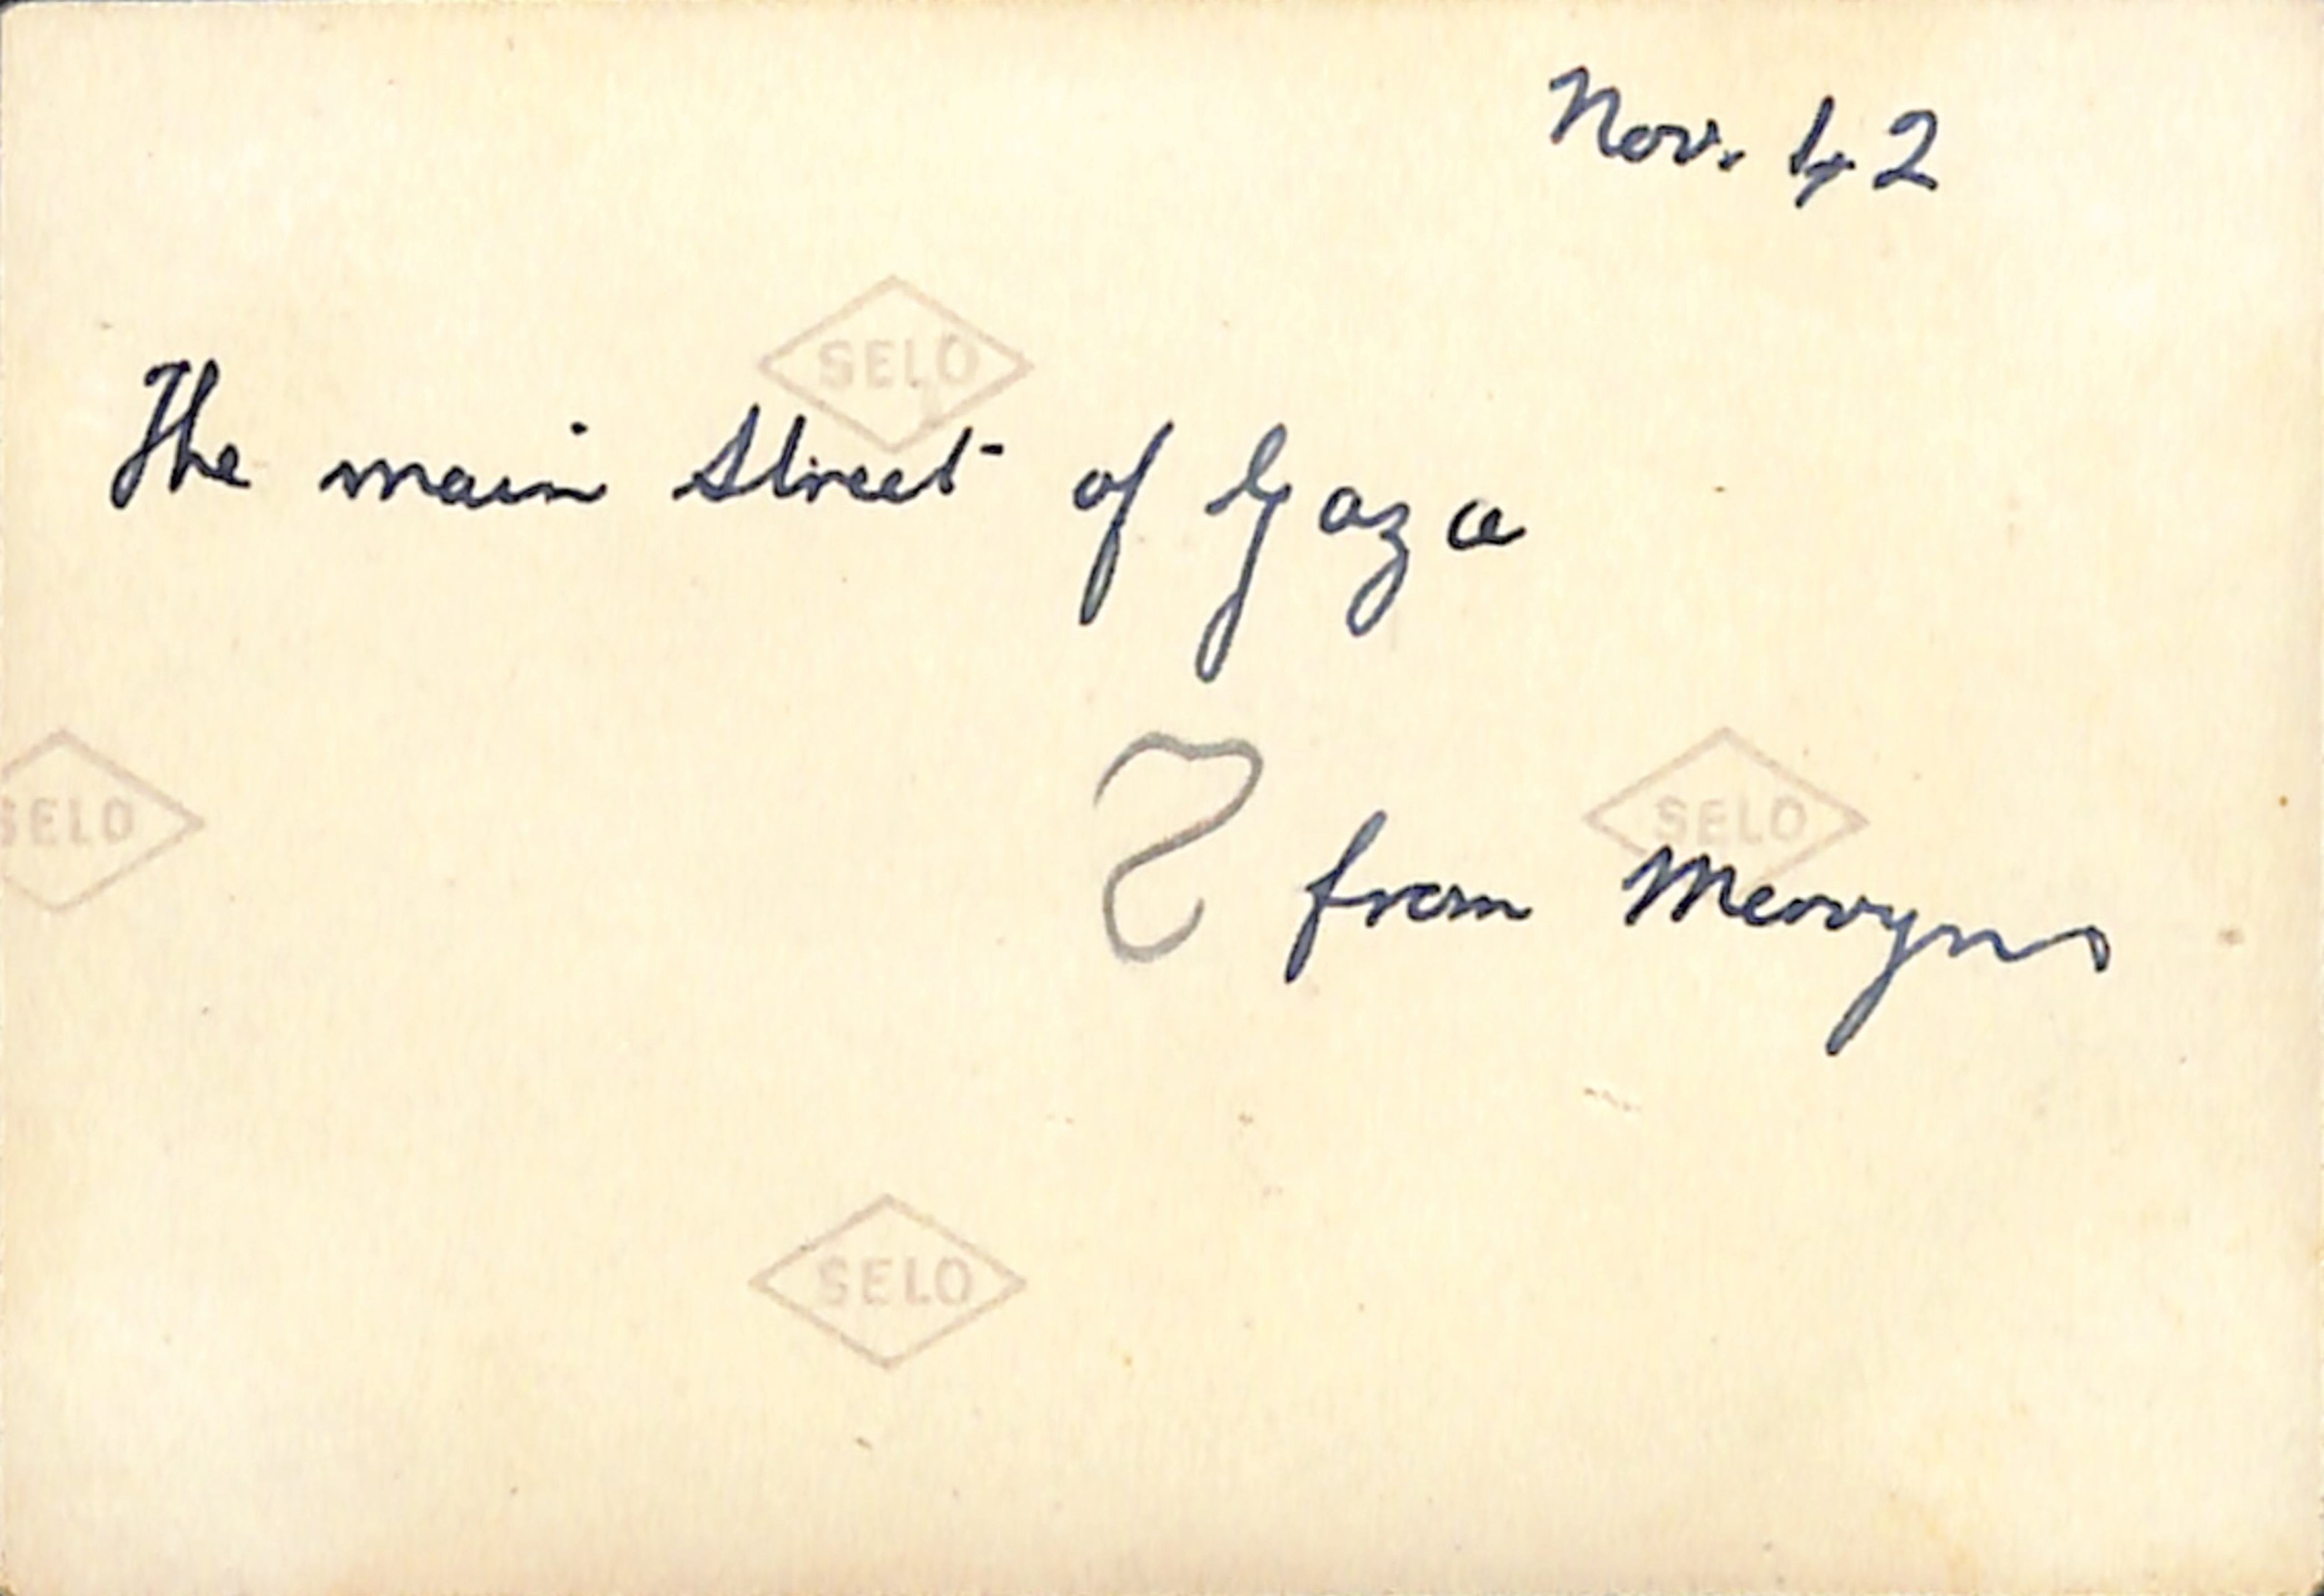 Nov. 42
SELO
The main street of Gaza
SELO
SELO
from Mervyn
SELO